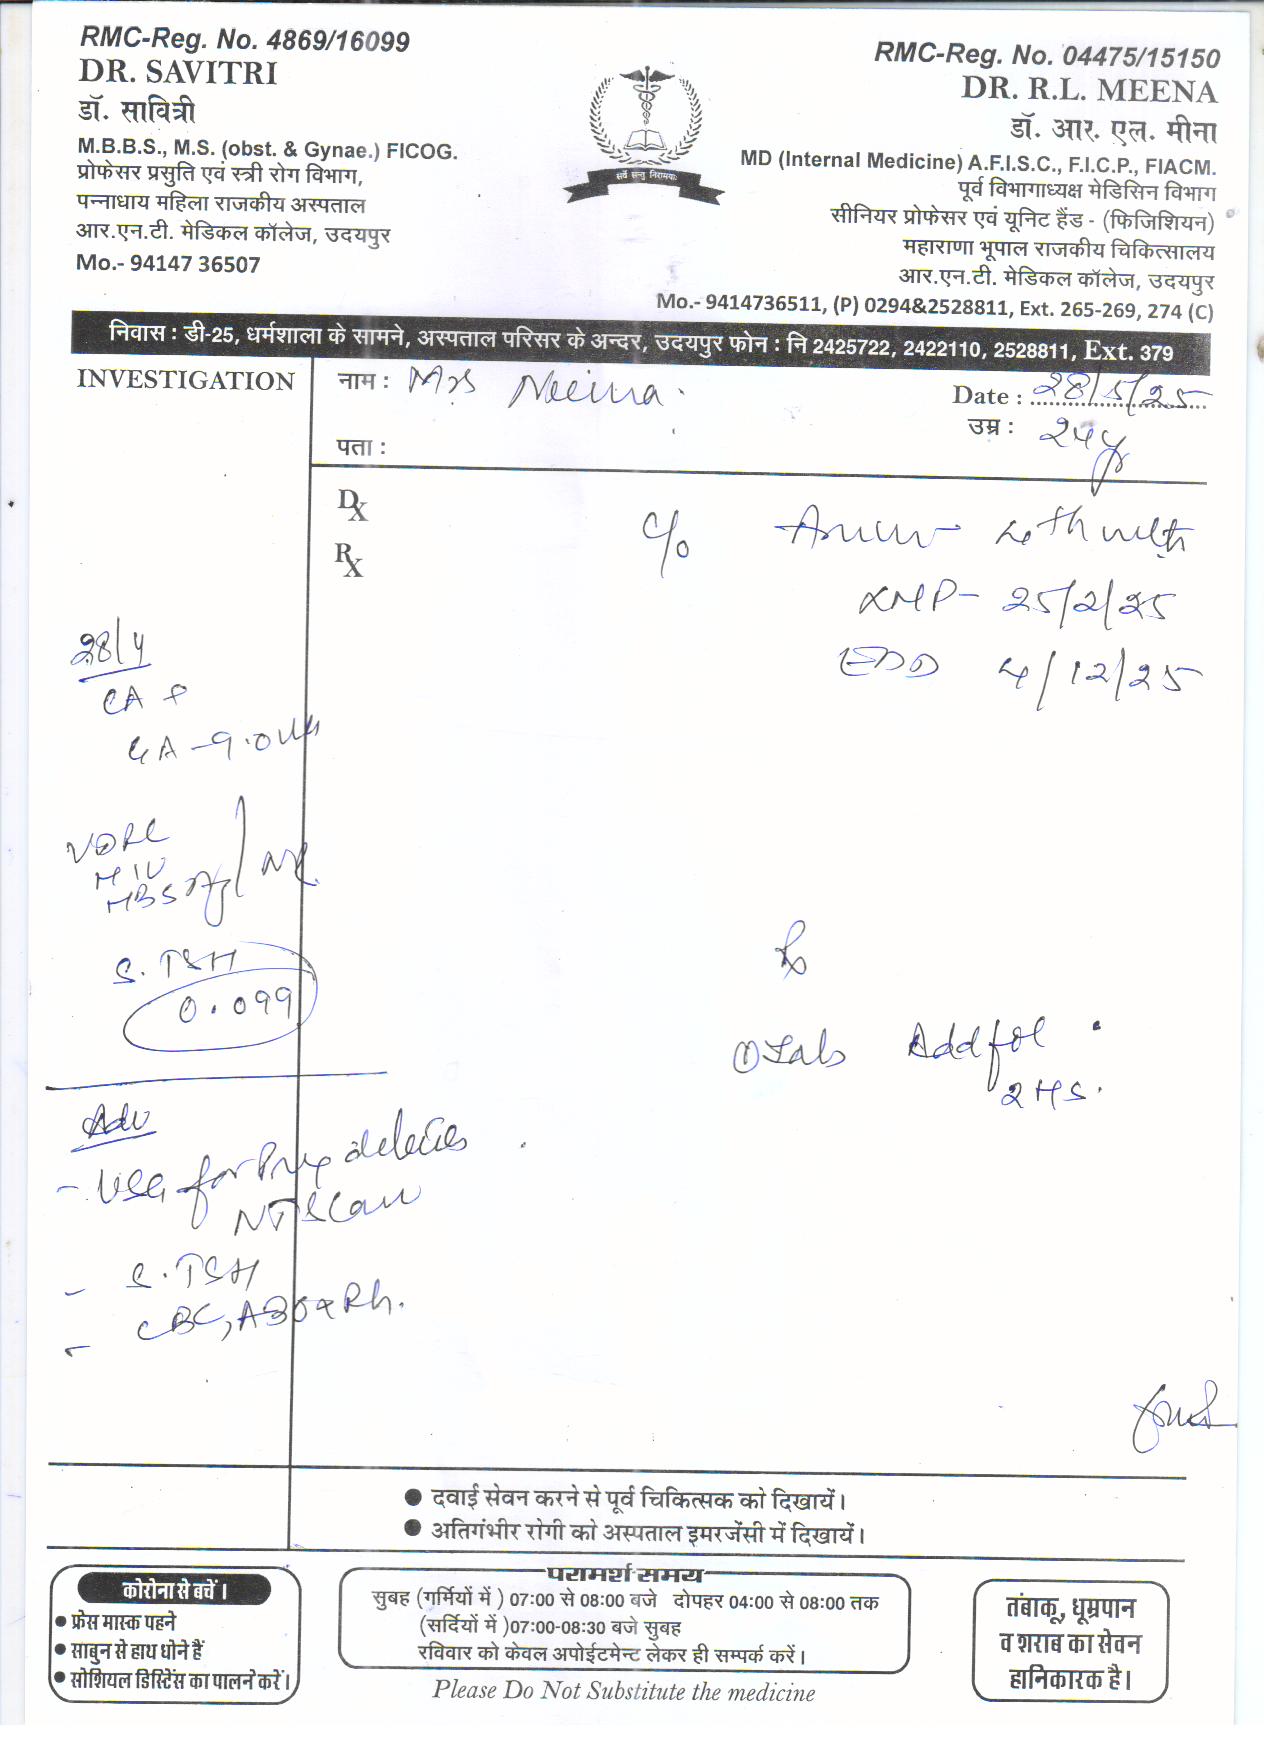 RMC-Reg. No. 4869/16099
DR. SAVITRI
डॉ. सावित्री
M.B.B.S., M.S. (obst. & Gynae.) FICOG.
प्रोफेसर प्रसुति एवं स्त्री रोग विभाग,
पन्नाधाय महिला राजकीय अस्पताल
आर.एन.टी. मेडिकल कॉलेज, उदयपुर
Mo.- 94147 36507
सर्वे सन्तु निरामयाः
RMC-Reg. No. 04475/15150
DR. R.L. MEENA
डॉ. आर. एल. मीना
MD (Internal Medicine) A.F.I.S.C., F.I.C.P., FIACM.
पूर्व विभागाध्यक्ष मेडिसिन विभाग
सीनियर प्रोफेसर एवं यूनिट हैंड - (फिजिशियन)
महाराणा भूपाल राजकीय चिकित्सालय
आर.एन.टी. मेडिकल कॉलेज, उदयपुर
Mo.- 9414736511, (P) 0294&2528811, Ext. 265-269, 274 (C)
निवास : डी-25, धर्मशाला के सामने, अस्पताल परिसर के अन्दर, उदयपुर फोन : नि 2425722, 2422110, 2528811, Ext. 379
INVESTIGATION
नाम : Mrs Neema.
Date : 28/5/25
उम्र : 24y
पता :
Dx
Rx
c/o 4th mth
LMP- 25/2/25
EDD 4/12/25
28/4
CA +
GA - 9.0 wk
VDRL
HIV
HBSAg
S. TSH
0.099
Rx
① Tab Addfol
2 HS.
Adv
- USG for
NT Scan
- S. TSH
- CBC, ABO & Rh.
● दवाई सेवन करने से पूर्व चिकित्सक को दिखायें।
● अतिगंभीर रोगी को अस्पताल इमरजेंसी में दिखायें।
कोरोना से बचें।
● फ्रेस मास्क पहने
● साबुन से हाथ धोने हैं
● सोशियल डिस्टिेंस का पालन करें।
परामर्श समय
सुबह (गर्मियों में ) 07:00 से 08:00 बजे दोपहर 04:00 से 08:00 तक
(सर्दियों में )07:00-08:30 बजे सुबह
रविवार को केवल अपोईटमेन्ट लेकर ही सम्पर्क करें।
Please Do Not Substitute the medicine
तंबाकू, धूम्रपान
व शराब का सेवन
हानिकारक है।